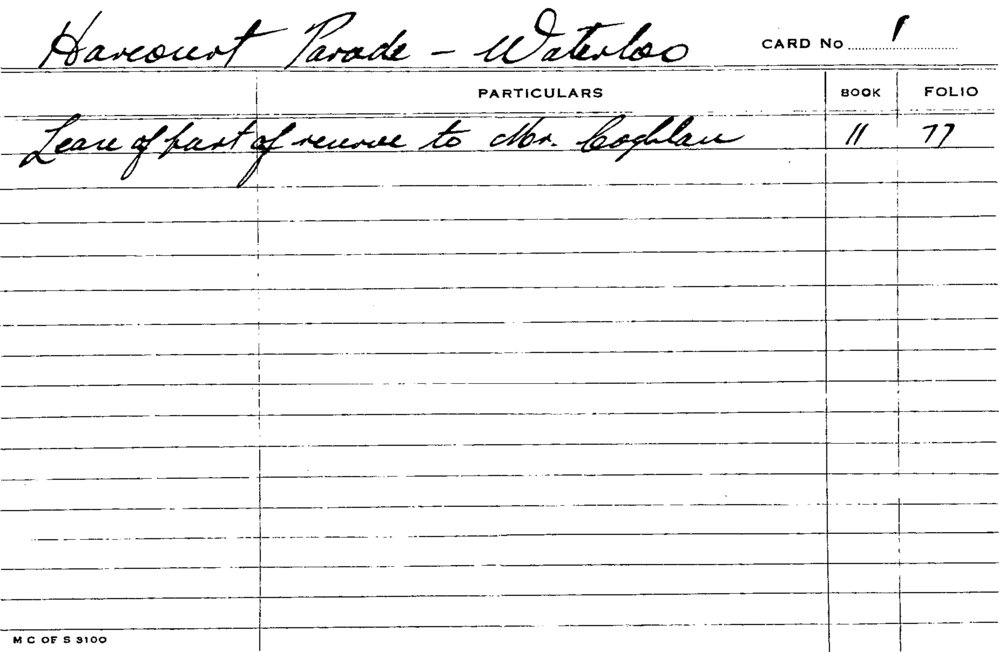 Harcourt Parade - Waterloo CARD No 1
PARTICULARS BOOK FOLIO
Lease of part of reserve to Mr. Coghlan 11 77
M C OF S 3100